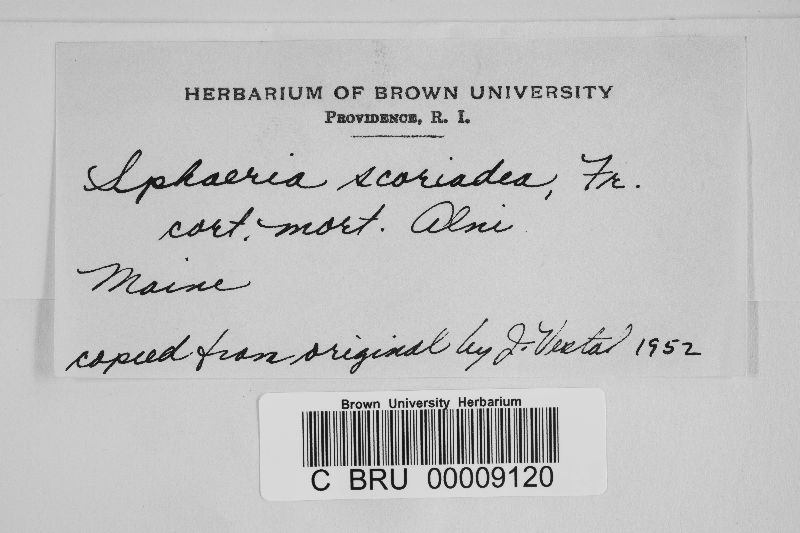 HERBARIUM OF BROWN UNIVERSITY
PROVIDENCE, R. I.
Sphaeria scoriadea, Fr.
cort. mort. Alni
Maine
copied from original by J. Vestal 1952
Brown University Herbarium
C BRU 00009120